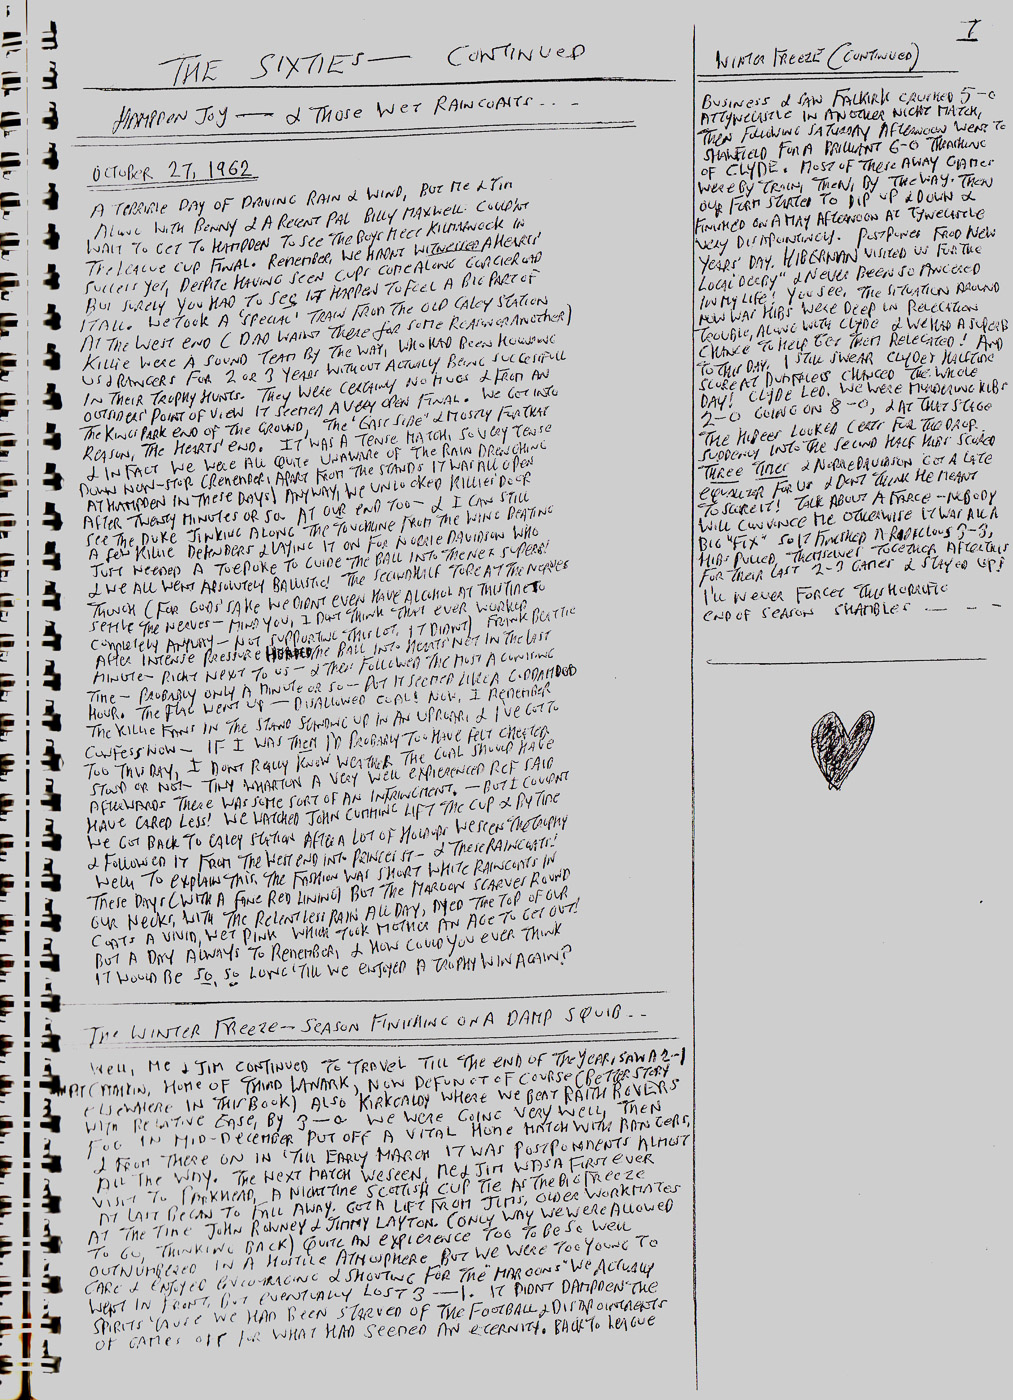 THE SIXTIES — CONTINUED
HAMPDEN JOY — & THOSE WET RAINCOATS . . . -
OCTOBER 27, 1962
A TERRIBLE DAY OF DRIVING RAIN & WIND, BUT ME & JIM
ALONG WITH BENNY & A RECENT PAL BILLY MAXWELL COULDN'T
WAIT TO GET TO HAMPDEN TO SEE THE BOYS MEET KILMARNOCK IN
THE LEAGUE CUP FINAL. REMEMBER, WE HADN'T WITNESSED A HEARTS'
SUCCESS YET, DESPITE HAVING SEEN CUPS COME ALONG GORGIE ROAD
BUT SURELY YOU HAD TO SEE IT HAPPEN TO FEEL A BIG PART OF
IT ALL. WE TOOK A 'SPECIAL' TRAIN FROM THE OLD CALEY STATION
AT THE WEST END (DAD WASN'T THERE FOR SOME REASON OR ANOTHER)
KILLIE WERE A SOUND TEAM BY THE WAY, WHO HAD BEEN HOUNDING
US & RANGERS FOR 2 OR 3 YEARS WITHOUT ACTUALLY BEING SUCCESSFUL
IN THEIR TROPHY HUNTS. THEY WERE CERTAINLY NO MUGS & FROM AN
OUTSIDERS' POINT OF VIEW IT SEEMED A VERY OPEN FINAL. WE GOT INTO
THE KINGS PARK END OF THE GROUND, THE "EAST SIDE" & MOSTLY FOR THAT
REASON, THE HEARTS' END. IT WAS A TENSE MATCH, SO VERY TENSE
& IN FACT WE WERE ALL QUITE UNAWARE OF THE RAIN DRENCHING
DOWN NON-STOP (REMEMBER, APART FROM THE STANDS IT WAS ALL OPEN
AT HAMPDEN IN THESE DAYS) ANYWAY, WE UNLOCKED KILLIE'S DOOR
AFTER TWENTY MINUTES OR SO. AT OUR END TOO — & I CAN STILL
SEE THE DUKE JINKING ALONG THE TOUCHLINE FROM THE WING BEATING
A FEW KILLIE DEFENDERS & LAYING IT ON FOR NORRIE DAVIDSON WHO
JUST NEEDED A TOEPOKE TO GUIDE THE BALL INTO THE NET. SUPERB!
& WE ALL WENT ABSOLUTELY BALLISTIC! THE SECOND HALF TORE AT THE NERVES
THOUGH (FOR GODS' SAKE WE DIDN'T EVEN HAVE ALCOHOL AT THIS TIME TO
SETTLE THE NERVES — MIND YOU, I DON'T THINK THAT EVER WORKED
COMPLETELY ANYWAY — NOT SUPPORTING THIS LOT, IT DIDN'T) FRANK BEATTIE
AFTER INTENSE PRESSURE HEADED THE BALL INTO HEARTS' NET IN THE LAST
MINUTE — RIGHT NEXT TO US — & THEN FOLLOWED THE MOST AGONISING
TIME — PROBABLY ONLY A MINUTE OR SO — BUT IT SEEMED LIKE A GODDAMNED
HOUR. THE FLAG WENT UP — DISALLOWED GOAL! NOW, I REMEMBER
THE KILLIE FANS IN THE STAND STANDING UP IN AN UPROAR, & I'VE GOT TO
CONFESS NOW — IF I WAS THEM I'D PROBABLY TOO HAVE FELT CHEATED
TOO THIS DAY, I DON'T REALLY KNOW WEATHER THE GOAL SHOULD HAVE
STOOD OR NOT — TINY WHARTON A VERY WELL EXPIERENCED REF SAID
AFTERWARDS THERE WAS SOME SORT OF AN INFRINGMENT. — BUT I COULDN'T
HAVE CARED LESS! WE WATCHED JOHN CUMMING LIFT THE CUP & BY TIME
WE GOT BACK TO CALEY STATION AFTER A LOT OF HOLDUPS WE SEEN THE TROPHY
& FOLLOWED IT FROM THE WEST END INTO PRINCES ST — & THESE RAINCOATS!
WELL, TO EXPLAIN THIS, THE FASHION WAS SHORT WHITE RAINCOATS IN
THESE DAYS (WITH A FINE RED LINING) BUT THE MAROON SCARVES ROUND
OUR NECKS, WITH THE RELENTLESS RAIN ALL DAY, DYED THE TOP OF OUR
COATS A VIVID, WET PINK WHICH TOOK MOTHER AN AGE TO GET OUT!
BUT A DAY ALWAYS TO REMEMBER, & HOW COULD YOU EVER THINK
IT WOULD BE SO, SO LONG 'TILL WE ENJOYED A TROPHY WIN AGAIN?
THE WINTER FREEZE — SEASON FINISHING ON A DAMP SQUIB . . .
WELL, ME & JIM CONTINUED TO TRAVEL TILL THE END OF THE YEAR, SAW A 2-1
AT CATHKIN, HOME OF THIRD LANARK, NOW DEFUNCT OF COURSE (BETTER STORY
ELSEWHERE IN THIS BOOK) ALSO KIRKCALDY WHERE WE BEAT RAITH ROVERS
WITH RELATIVE EASE, BY 3-0. WE WERE GOING VERY WELL, THEN
FOG IN MID-DECEMBER PUT OFF A VITAL HOME MATCH WITH RANGERS,
& FROM THERE ON IN 'TILL EARLY MARCH IT WAS POSTPONMENTS ALMOST
ALL THE WAY. THE NEXT MATCH WE SEEN, ME & JIM WAS A FIRST EVER
VISIT TO PARKHEAD, A NIGHTTIME SCOTTISH CUP TIE AS THE BIG FREEZE
AT LAST BEGAN TO FALL AWAY. GOT A LIFT FROM JIMS, OLDER WORKMATES
AT THE TIME JOHN ROONEY & JIMMY LAYTON. (ONLY WAY WE WERE ALLOWED
TO GO, THINKING BACK) QUITE AN EXPIERENCE TOO TO BE SO WELL
OUTNUMBERED IN A HOSTILE ATMOSPHERE BUT WE WERE TOO YOUNG TO
CARE & ENJOYED ENCOURAGING & SHOUTING FOR THE "MAROONS" WE ACTUALLY
WENT IN FRONT, BUT EVENTUALLY LOST 3 — 1. IT DIDN'T DAMPDEN THE
SPIRITS 'CAUSE WE HAD BEEN STARVED OF THE FOOTBALL & DISAPPOINTMENTS
OF GAMES OFF FOR WHAT HAD SEEMED AN ETERNITY. BACK TO LEAGUE
7
WINTER FREEZE (CONTINUED)
BUSINESS & SAW FALKIRK CRUSHED 5-0
AT TYNECASTLE IN ANOTHER NIGHT MATCH,
THEN FOLLOWING SATURDAY AFTERNOON WENT TO
SHAWFIELD FOR A BRILLIANT 6-0 THRASHING
OF CLYDE. MOST OF THESE AWAY GAMES
WERE BY TRAIN, THEN, BY THE WAY. THEN
OUR FORM STARTED TO DIP UP & DOWN &
FINISHED ON A MAY AFTERNOON AT TYNECASTLE
VERY DISAPOINTINGLY. POSTPONED FROM NEW
YEARS' DAY, HIBERNIAN VISITED US FOR THE
LOCAL "DERBY" & I'VE NEVER BEEN SO ANGERED
IN MY LIFE! YOU SEE, THE SITUATION AROUND
NOW WAS HIBS WERE DEEP IN RELEGATION
TROUBLE, ALONG WITH CLYDE & WE HAD A SUPERB
CHANCE TO HELP GET THEM RELEGATED! AND
TO THIS DAY, I STILL SWEAR CLYDE'S HALFTIME
SCORE AT DUMFRIES CHANGED THE WHOLE
DAY! CLYDE LED. WE WERE MURDERING HIBS
2-0 GOING ON 8-0, & AT THAT STAGE
THE HIBEES LOOKED CERTS FOR THE DROP.
SUDDENLY INTO THE SECOND HALF HIBS SCORED
THREE TIMES & NORRIE DAVIDSON GOT A LATE
EQUALIZER FOR US & I DON'T THINK HE MEANT
TO SCORE IT! TALK ABOUT A FARCE — NOBODY
WILL CONVINCE ME OTHERWISE IT WAS ALL A
BIG "FIX" SO IT FINISHED A RIDICULOUS 3-3,
HIBS PULLED THEMSELVES TOGETHER AFTER THIS
FOR THEIR LAST 2-3 GAMES & STAYED UP!
I'LL NEVER FORGET THIS HORRIFIC
END OF SEASON SHAMBLES — — -